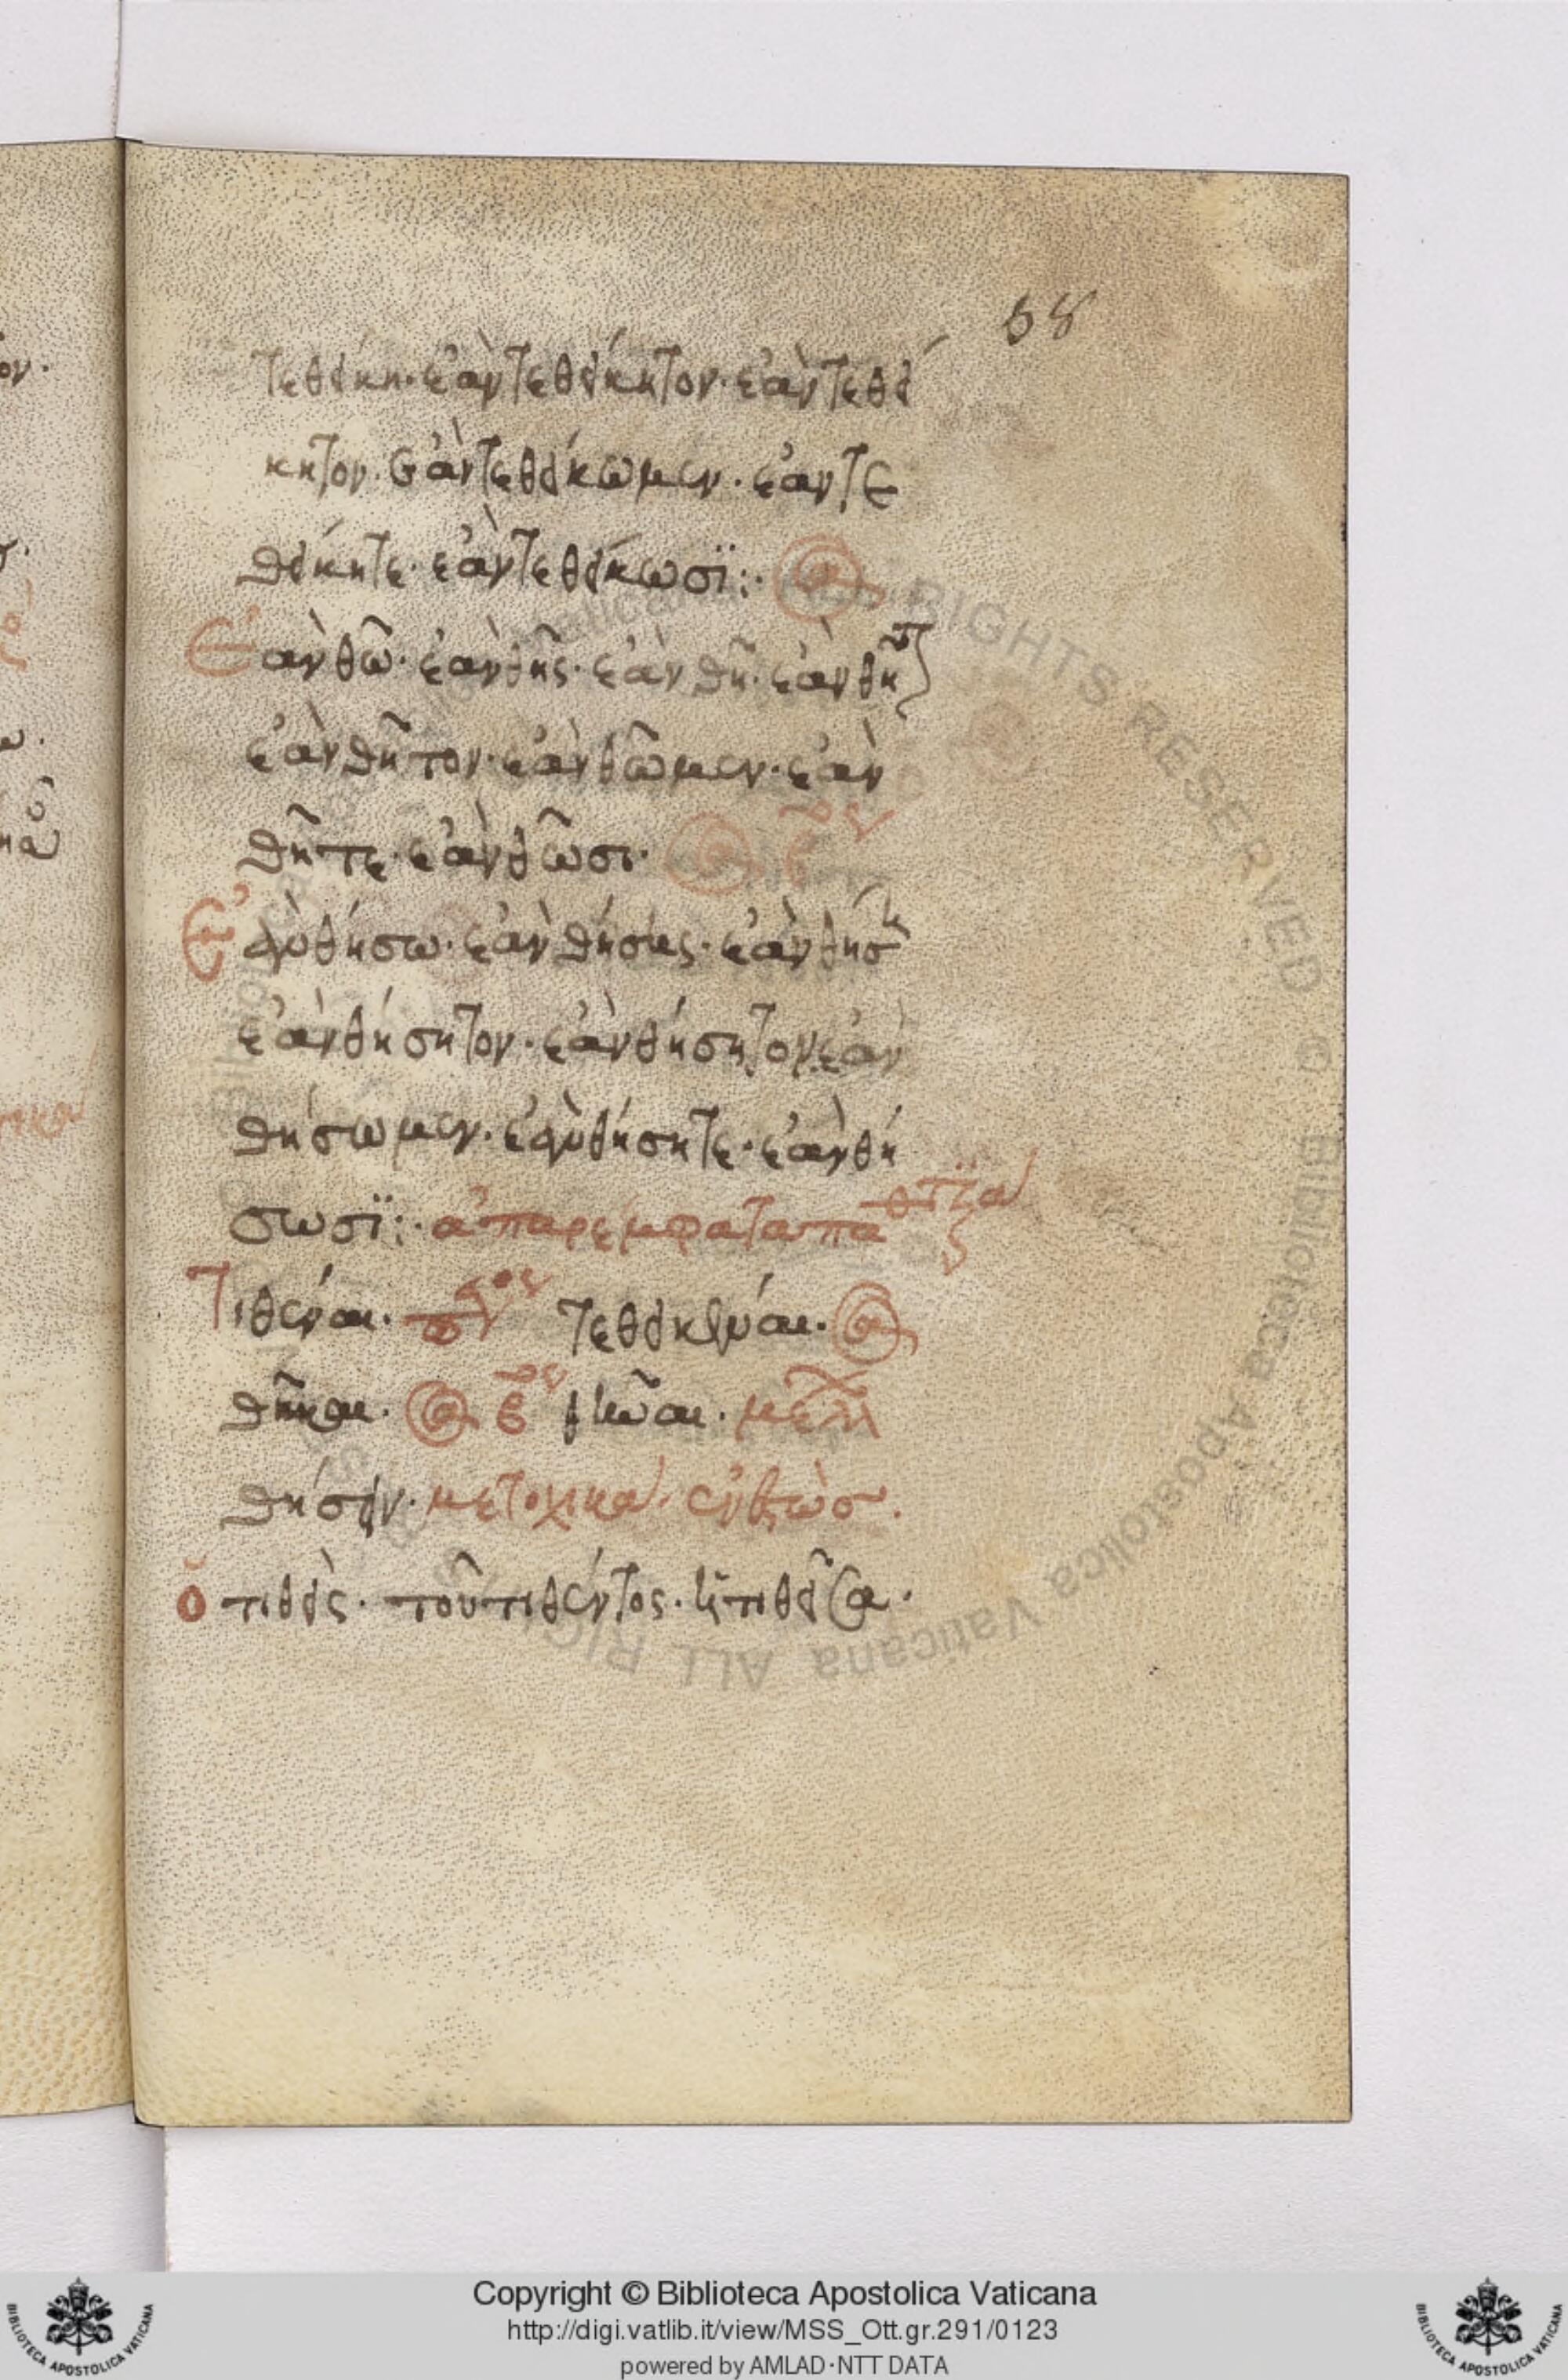 58
τεθείκη· ἐὰν τεθείκητον· ἐὰν τεθεί
κητον· ἐὰν τεθείκωμεν· ἐὰν τε
θείκητε· ἐὰν τεθείκωσϊ:·
Ἐὰν θῶ· ἐὰν θῆς· ἐὰν θῆ· ἐὰν θῆτον
ἐὰν θῆτον· ἐὰν θῶμεν· ἐὰν
θῆτε· ἐὰν θῶσι·
Ἐὰν θήσω· ἐὰν θήσης· ἐὰν θήση
ἐὰν θήσητον· ἐὰν θήσητον· ἐὰν
θήσωμεν· ἐὰν θήσητε· ἐὰν θή
σωσϊ:· ἀπαρέμφατα
Τιθέναι· τεθεικέναι·
θῆκαι· θεῖναι· μελλ
θήσειν· μετοχικά·
ὁ τιθείς· τοῦ τιθέντος· ἡ τιθεῖσα·
RIGHTS RESERVED © Biblioteca Apostolica Vaticana ALL
Copyright © Biblioteca Apostolica Vaticana
http://digi.vatlib.it/view/MSS_Ott.gr.291/0123
powered by AMLAD·NTT DATA
BIBLIOTECA APOSTOLICA VATICANA
BIBLIOTECA APOSTOLICA VATICANA